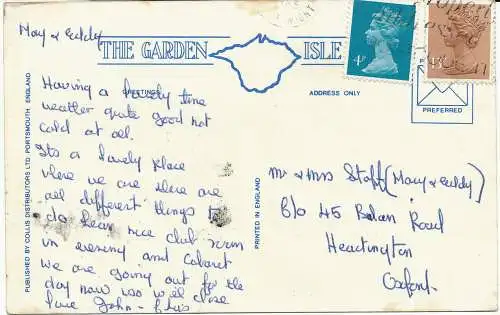 May & Eddy
THE GARDEN ISLE
GREETINGS
ADDRESS ONLY
4P
PREFERRED
Having a lovely time
weather quite good not
cold at all.
Its a lovely place
where we are there are
all different things to
do here nice club room
in evening and Cabaret
we are going out for the
day now so will close
love John - Elsis
Mr & Mrs Staff (Mary & Eddy)
45
Road
Headington
Oxford.
PRINTED IN ENGLAND
PUBLISHED BY COLLIS DISTRIBUTORS LTD. PORTSMOUTH, ENGLAND